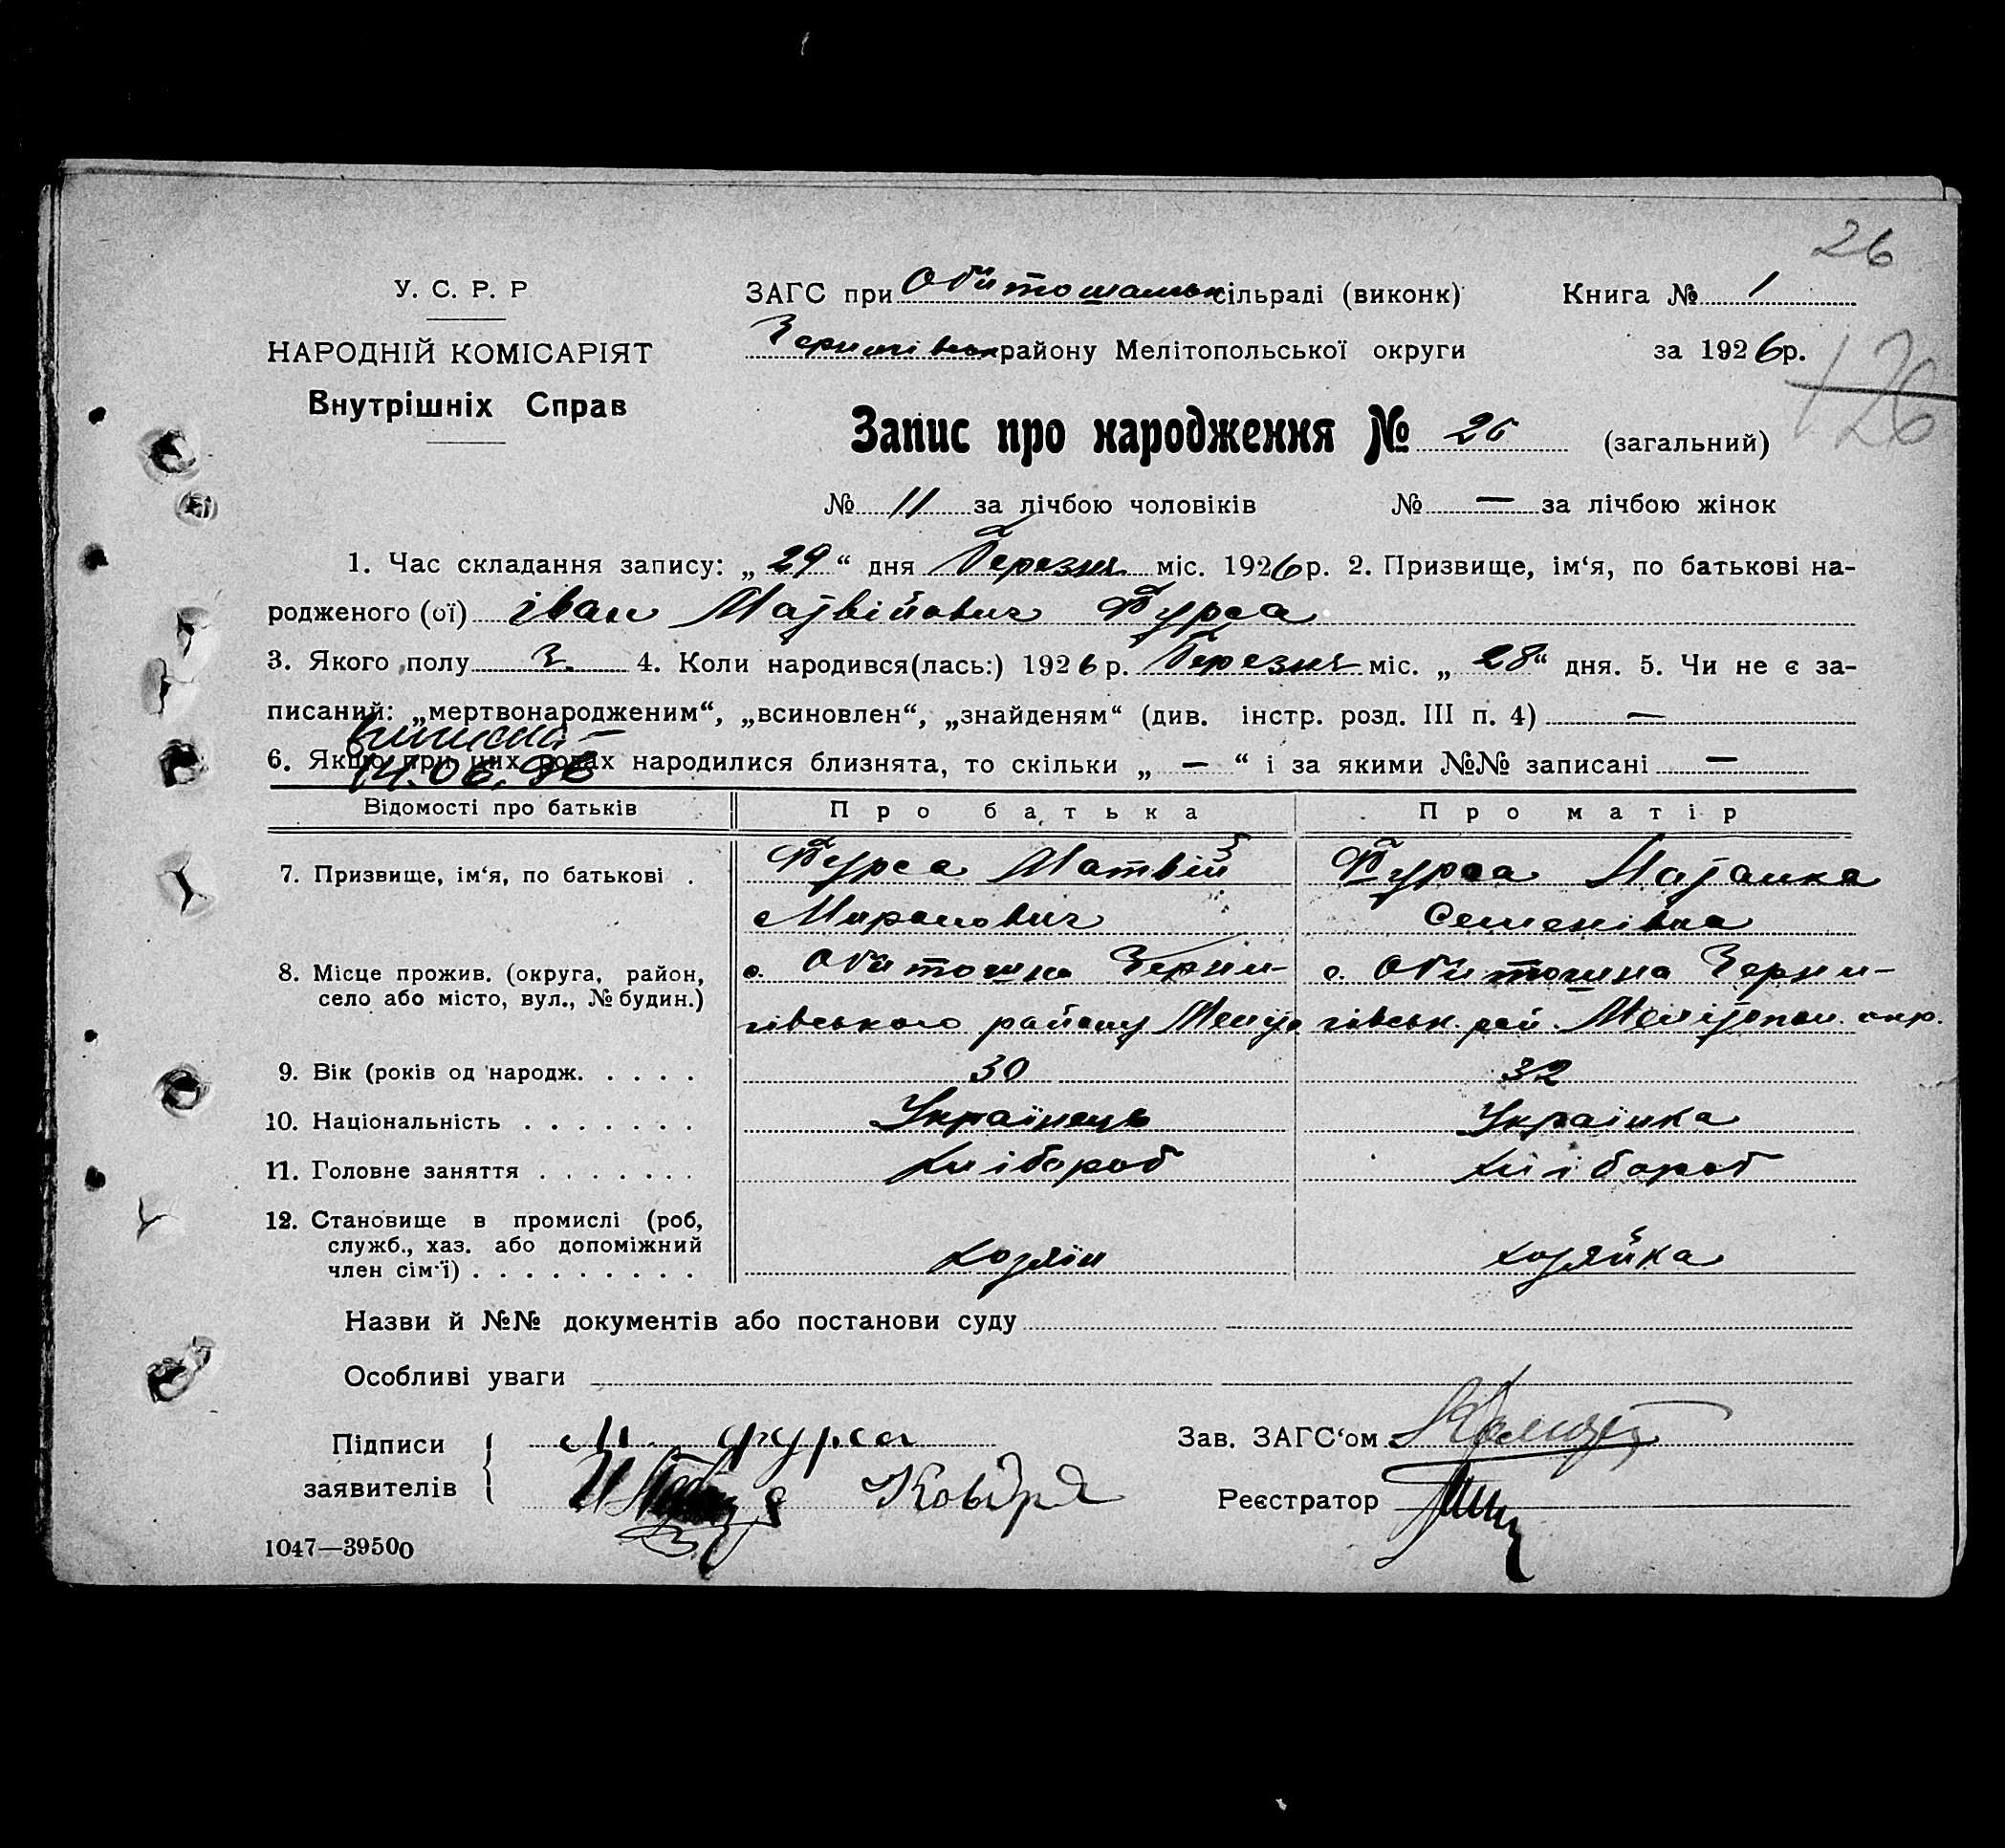 26
У. С. Р. Р
НАРОДНІЙ КОМІСАРІЯТ
Внутрішніх Справ
ЗАГС при Обиточанськ сільраді (виконк) Книга № 1
районy Мелітопольської округи за 1926р.
126
Запис про народження № 26 (загальний)
№ 11 за лічбою чоловіків № — за лічбою жінок
1. Час складання запису: „ 29 “ дня Березня міс. 1926р. 2. Призвище, ім‘я, по батькові на-
родженого (ої) іван Матвійович Фурса
3. Якого полу Ч. 4. Коли народився(лась:) 1926р. Березня міс. „ 28 “ дня. 5. Чи не є за-
писаний: „мертвонародженим“, „всиновлен“, „знайденям“ (див. інстр. розд. III п. 4) —
6. Якщо при цих родах народилися близнята, то скільки „ — “ і за якими №№ записані —
14.06.96
Відомості про батьків Про батька Про матір
7. Призвище, ім‘я, по батькові . Фурса Матвій Фурса
Миронович Семенівна
8. Місце прожив. (округа, район, с. Обиточна Черни- с. Обиточна Черни-
село або місто, вул., № будин.)
гівського району Меліт гівськ. рай. Мелітопол. окр.
9. Вік (років од народж. . . . . 30 32
10. Національність . . . . . . . Українець Українка
11. Головне заняття . . . . . . . Хлібороб Хлібороб
12. Становище в промислі (роб,
служб., хаз. або допоміжний
член сім‘ї) . . . . . . . . . Хозяїн хозяйка
Назви й №№ документів або постанови суду
Особливі уваги
Підписи М. Фурса Зав. ЗАГС‘ом
заявителів Ковіря Реєстратор
1047—39500